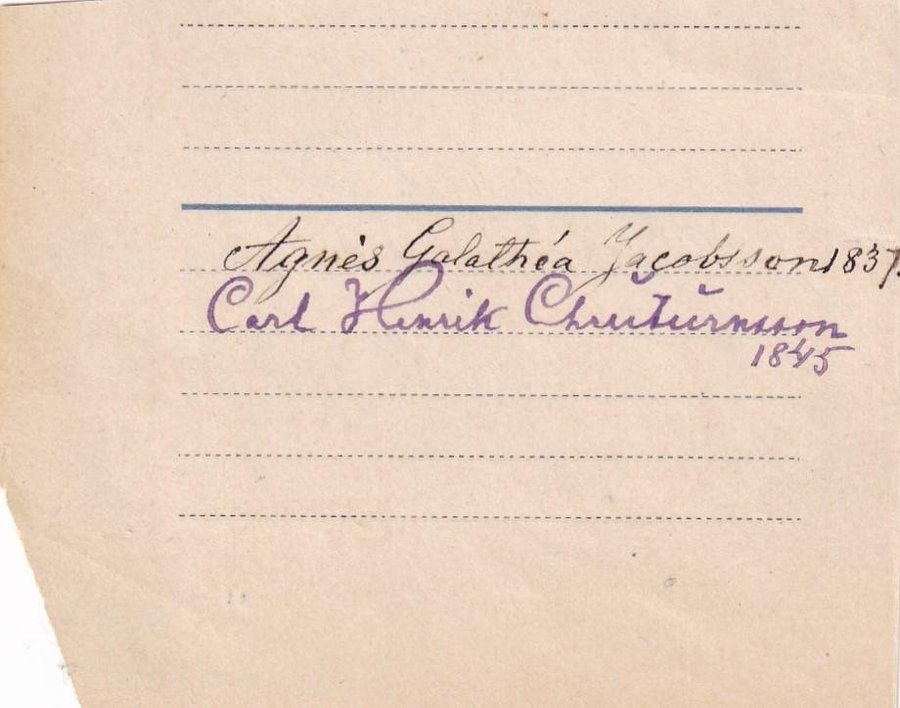 Agnès Galathéa Jacobsson 1837
Carl Henrik
1845